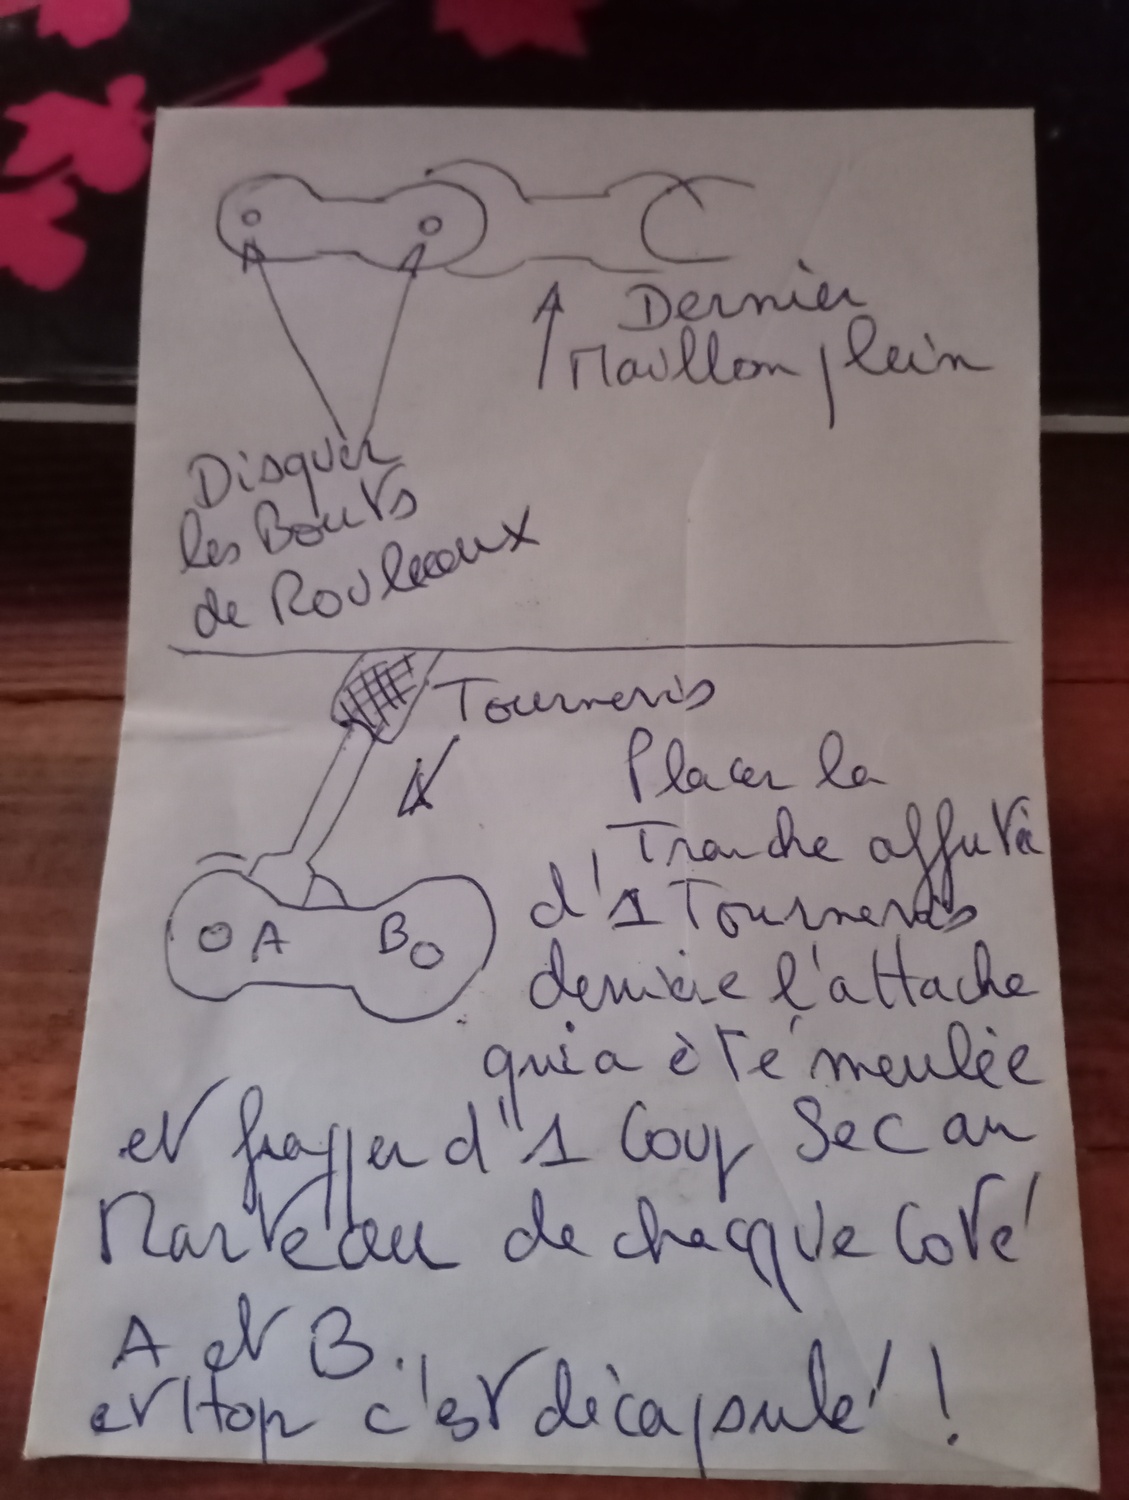 Dernier
Maillon plein
Disquer
les Bouts
de Rouleaux
Tournevis
Placer la
Tranche affutée
d'1 Tournevis
A
B
derrière l'attache
qui a été meulée
et frapper d'1 Coup Sec au
Marteau de chaque Coté
A et B.
et Hop c'est décapsulé !